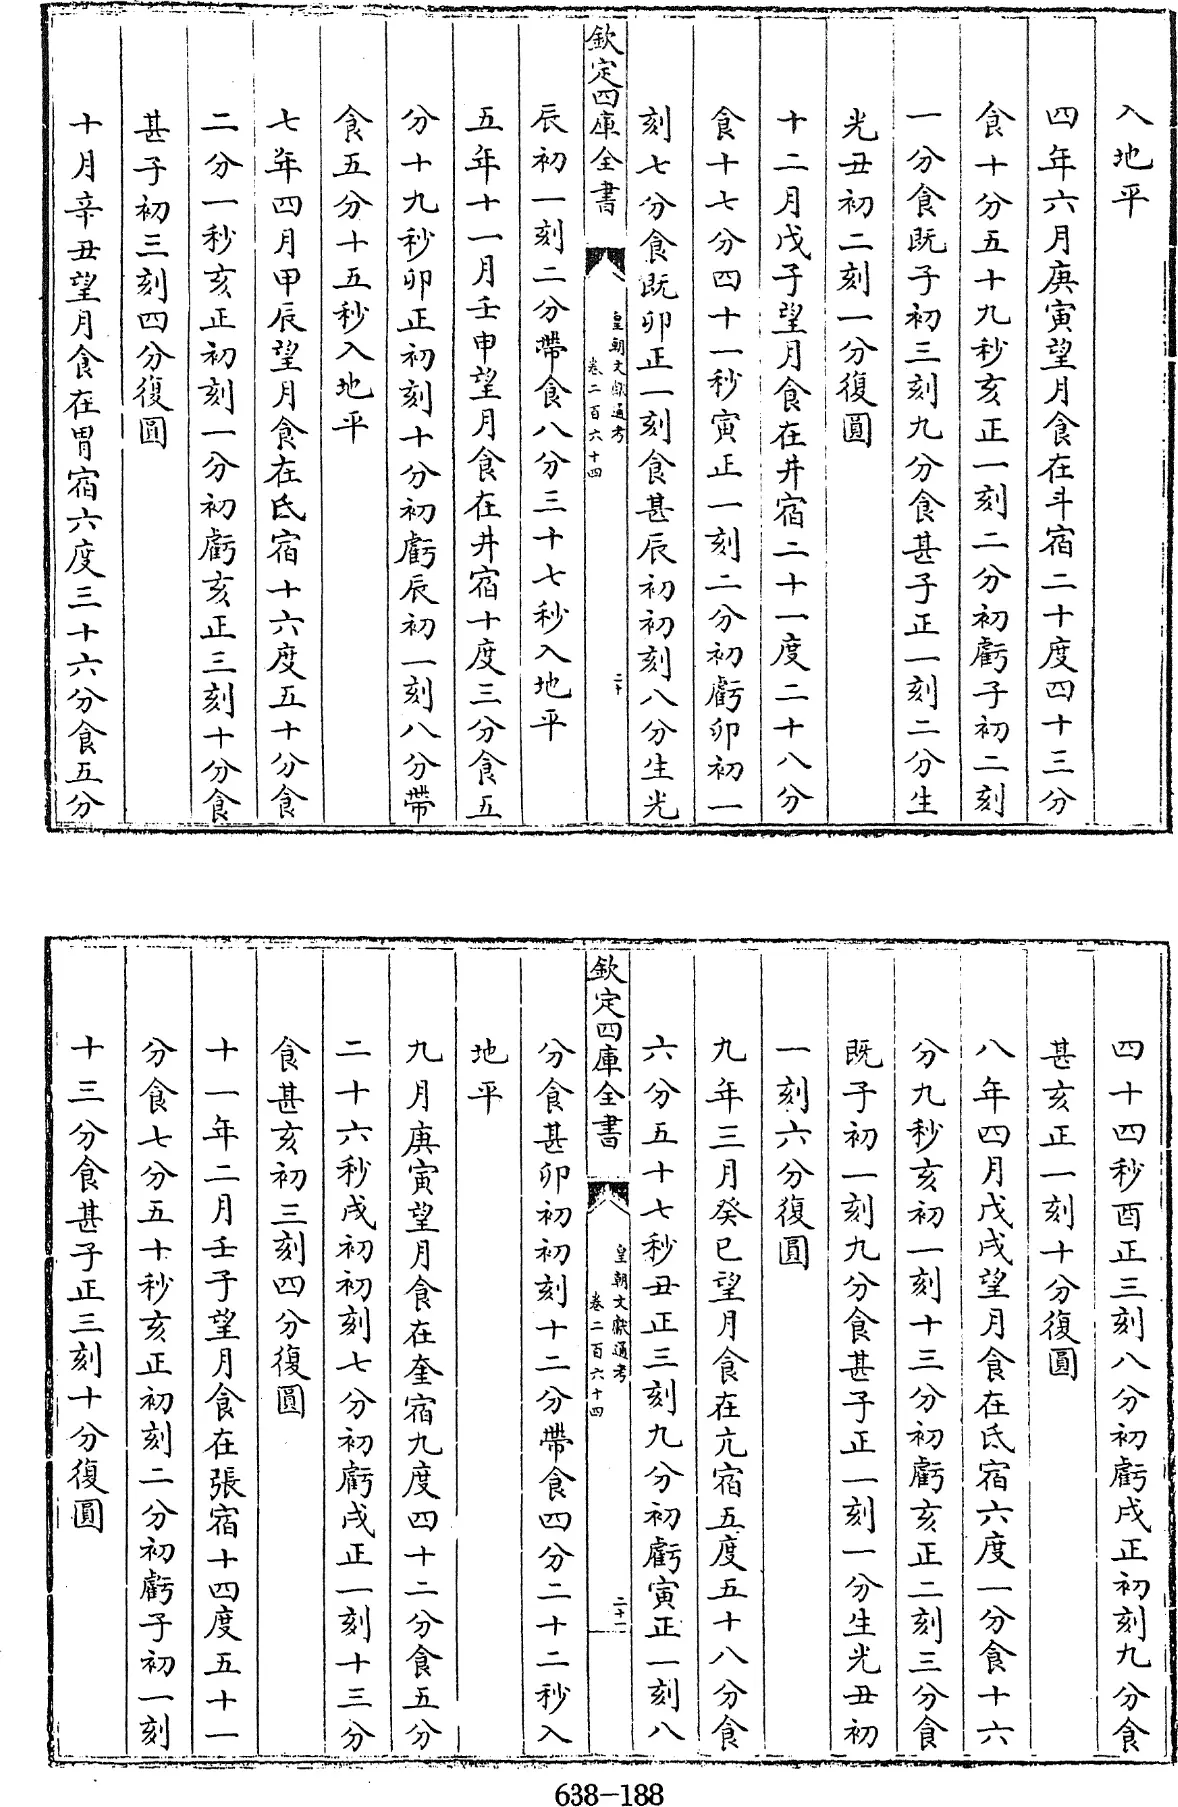 入地平
四年六月庚寅望月食在斗宿二十度四十三分
食十分五十九秒亥正一刻二分初虧子初二刻
一分食既子初三刻九分食甚子正一刻二分生
光丑初二刻一分復圓
十二月戊子望月食在井宿二十一度二十八分
食十七分四十一秒寅正一刻二分初虧卯初一
刻七分食既卯正一刻食甚辰初初刻八分生光
欽定四庫全書
皇朝文獻通考
卷二百六十四
二十
辰初一刻二分帶食八分三十七秒入地平
五年十一月壬申望月食在井宿十度三分食五
分十九秒卯正初刻十分初虧辰初一刻八分帶
食五分十五秒入地平
七年四月甲辰望月食在氐宿十六度五十分食
二分一秒亥正初刻一分初虧亥正三刻十分食
甚子初三刻四分復圓
十月辛丑望月食在胃宿六度三十六分食五分
四十四秒酉正三刻八分初虧戌正初刻九分食
甚亥正一刻十分復圓
八年四月戊戌望月食在氐宿六度一分食十六
分九秒亥初一刻十三分初虧亥正二刻三分食
既子初一刻九分食甚子正一刻一分生光丑初
一刻六分復圓
九年三月癸巳望月食在亢宿五度五十八分食
六分五十七秒丑正三刻九分初虧寅正一刻八
欽定四庫全書
皇朝文獻通考
卷二百六十四
二十一
分食甚卯初初刻十二分帶食四分二十二秒入
地平
九月庚寅望月食在奎宿九度四十二分食五分
二十六秒戌初初刻七分初虧戌正一刻十三分
食甚亥初三刻四分復圓
十一年二月壬子望月食在張宿十四度五十一
分食七分五十秒亥正初刻二分初虧子初一刻
十三分食甚子正三刻十分復圓
638-188